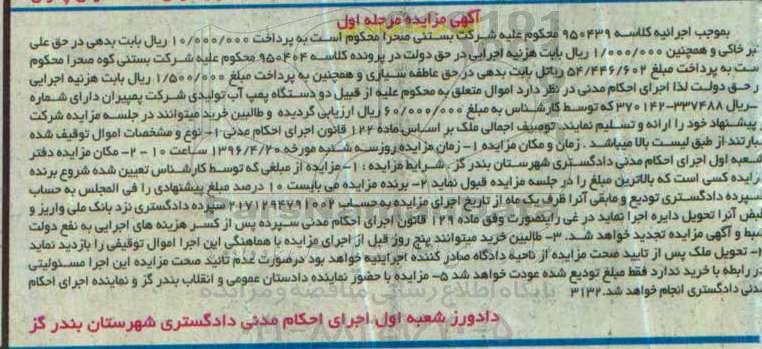 آگهی مزایده مرحله اول
بموجب اجرائیه کلاسه ۹۵۰۴۳۹ محکوم علیه شرکت بستنی صحرا محکوم است به پرداخت ۱۰/۰۰۰/۰۰۰ ریال بابت بدهی در حق علی
خاکی و همچنین ۱/۰۰۰/۰۰۰ ریال بابت هزینه اجرایی در حق دولت در پرونده کلاسه ۹۵۰۴۰۴ محکوم علیه شرکت بستنی کوه صحرا محکوم
ست به پرداخت مبلغ ۵۴/۴۴۶/۶۰۲ ریال بابت بدهی در حق عاطفه شیاری و همچنین به پرداخت مبلغ ۱/۵۰۰/۰۰۰ ریال بابت هزینه اجرایی
ر حق دولت لذا اجرای احکام مدنی در نظر دارد اموال متعلق به محکوم علیه از قبیل دو دستگاه پمپ آب تولیدی شرکت پمپیران دارای شماره
سریال ۳۳۷۴۸۸-۳۷۰۱۴۲ که توسط کارشناس به مبلغ ۶۰/۰۰۰/۰۰۰ ریال ارزیابی گردیده و طالبین خرید میتوانند در جلسه مزایده شرکت
و پیشنهاد خود را ارائه و تسلیم نمایند. توصیف اجمالی ملک بر اساس ماده ۱۲۲ قانون اجرای احکام مدنی ۱- نوع و مشخصات اموال توقیف شده
بارتند از طبق لیست بالا میباشد . زمان و مکان مزایده ۱- زمان مزایده روز سه شنبه مورخه ۱۳۹۶/۴/۲۰ ساعت ۱۰ - ۲- مکان مزایده دفتر
شعبه اول اجرای احکام مدنی دادگستری شهرستان بندر گز . شرایط مزایده : ۱- مزایده از مبلغی که توسط کارشناس تعیین شده شروع برنده
زایده کسی است که بالاترین مبلغ را در جلسه مزایده قبول نماید ۲- برنده مزایده می بایست ۱۰ درصد مبلغ پیشنهادی را فی المجلس به حساب
سپرده دادگستری تودیع و مابقی آنرا ظرف یک ماه از تاریخ اجرای مزایده به حساب ۲۱۷۱۲۹۴۷۹۱۰۰۲ سپرده دادگستری نزد بانک ملی واریز و
بض آنرا تحویل دایره اجرا نماید در غی راینصورت وفق ماده ۱۲۹ قانون اجرای احکام مدنی سپرده پس از کسر هزینه های اجرایی به نفع دولت
ضبط و آگهی مزایده تجدید خواهد شد. ۳- طالبین خرید میتوانند پنج روز قبل از اجرای مزایده با هماهنگی این اجرا اموال توقیفی را بازدید نماید
۴- تحویل ملک پس از تایید صحت مزایده از ناحیه دادگاه صادر کننده اجرائیه خواهد بود درصورت عدم تائید صحت مزایده این اجرا مسئولیتی
در رابطه با خرید ندارد فقط مبلغ تودیع شده عودت خواهد شد ۵- مزایده با حضور نماینده دادستان عمومی و انقلاب بندر گز و نماینده اجرای احکام
مدنی دادگستری انجام خواهد شد. ۳۱۳۲
پایگاه اطلاع رسانی مناقصه و مزایده
دادورز شعبه اول اجرای احکام مدنی دادگستری شهرستان بندر گز